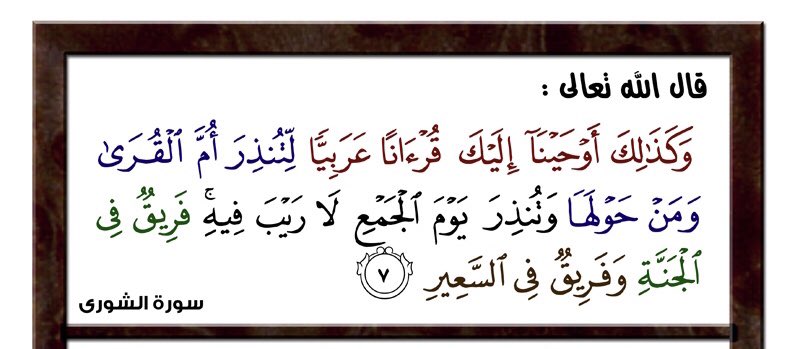 قال الله تعالى :
وَكَذَٰلِكَ أَوْحَيْنَآ إِلَيْكَ قُرْءَانًا عَرَبِيًّا لِّتُنذِرَ أُمَّ ٱلْقُرَىٰ
وَمَنْ حَوْلَهَا وَتُنذِرَ يَوْمَ ٱلْجَمْعِ لَا رَيْبَ فِيهِ ۚ فَرِيقٌ فِى
ٱلْجَنَّةِ وَفَرِيقٌ فِى ٱلسَّعِيرِ ٧
سورة الشورى